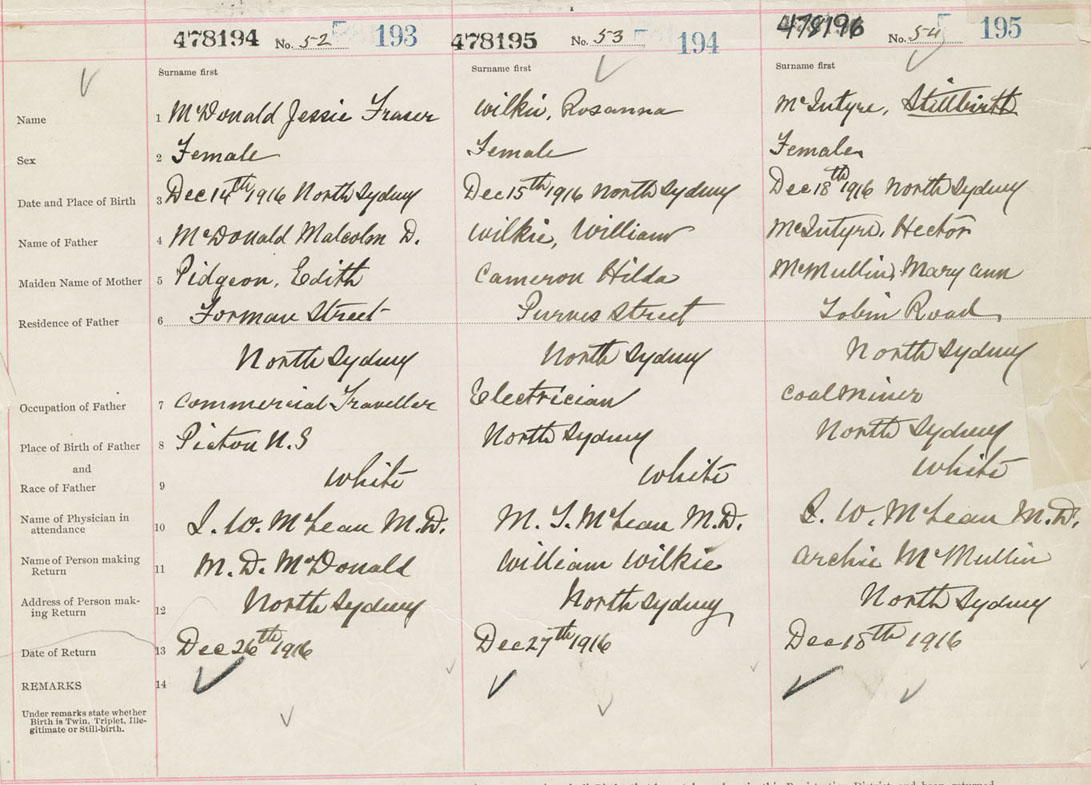 478194 No. 52 193
478195 No. 53 194
478196 No. 54 195
Surname first Surname first Surname first
Name 1 McDonald Jessie Fraser Wilkie, Rosanna McIntyre, Stillbirth
Sex 2 Female Female Female
Date and Place of Birth 3 Dec 14th 1916 North Sydney Dec 15th 1916 North Sydney Dec 18th 1916 North Sydney
Name of Father 4 McDonald Malcolm D. Wilkie, William McIntyre, Hector
Maiden Name of Mother 5 Pidgeon, Edith Cameron Hilda McMullin, Mary Ann
Residence of Father 6 Forman Street Purves Street Tobin Road
North Sydney North Sydney North Sydney
Occupation of Father 7 Commercial Traveller Electrician Coal Miner
Place of Birth of Father 8 Pictou N.S North Sydney North Sydney
and
Race of Father 9 White White White
Name of Physician in
attendance 10 L. W. McLean M.D. M. T. McLean M.D. L. W. McLean M.D.
Name of Person making
Return 11 M. D. McDonald William Wilkie Archie McMullin
Address of Person mak-
ing Return 12 North Sydney North Sydney North Sydney
Date of Return 13 Dec 26th 1916 Dec 27th 1916 Dec 18th 1916
REMARKS 14
Under remarks state whether
Birth is Twin, Triplet, Ille-
gitimate or Still-birth.